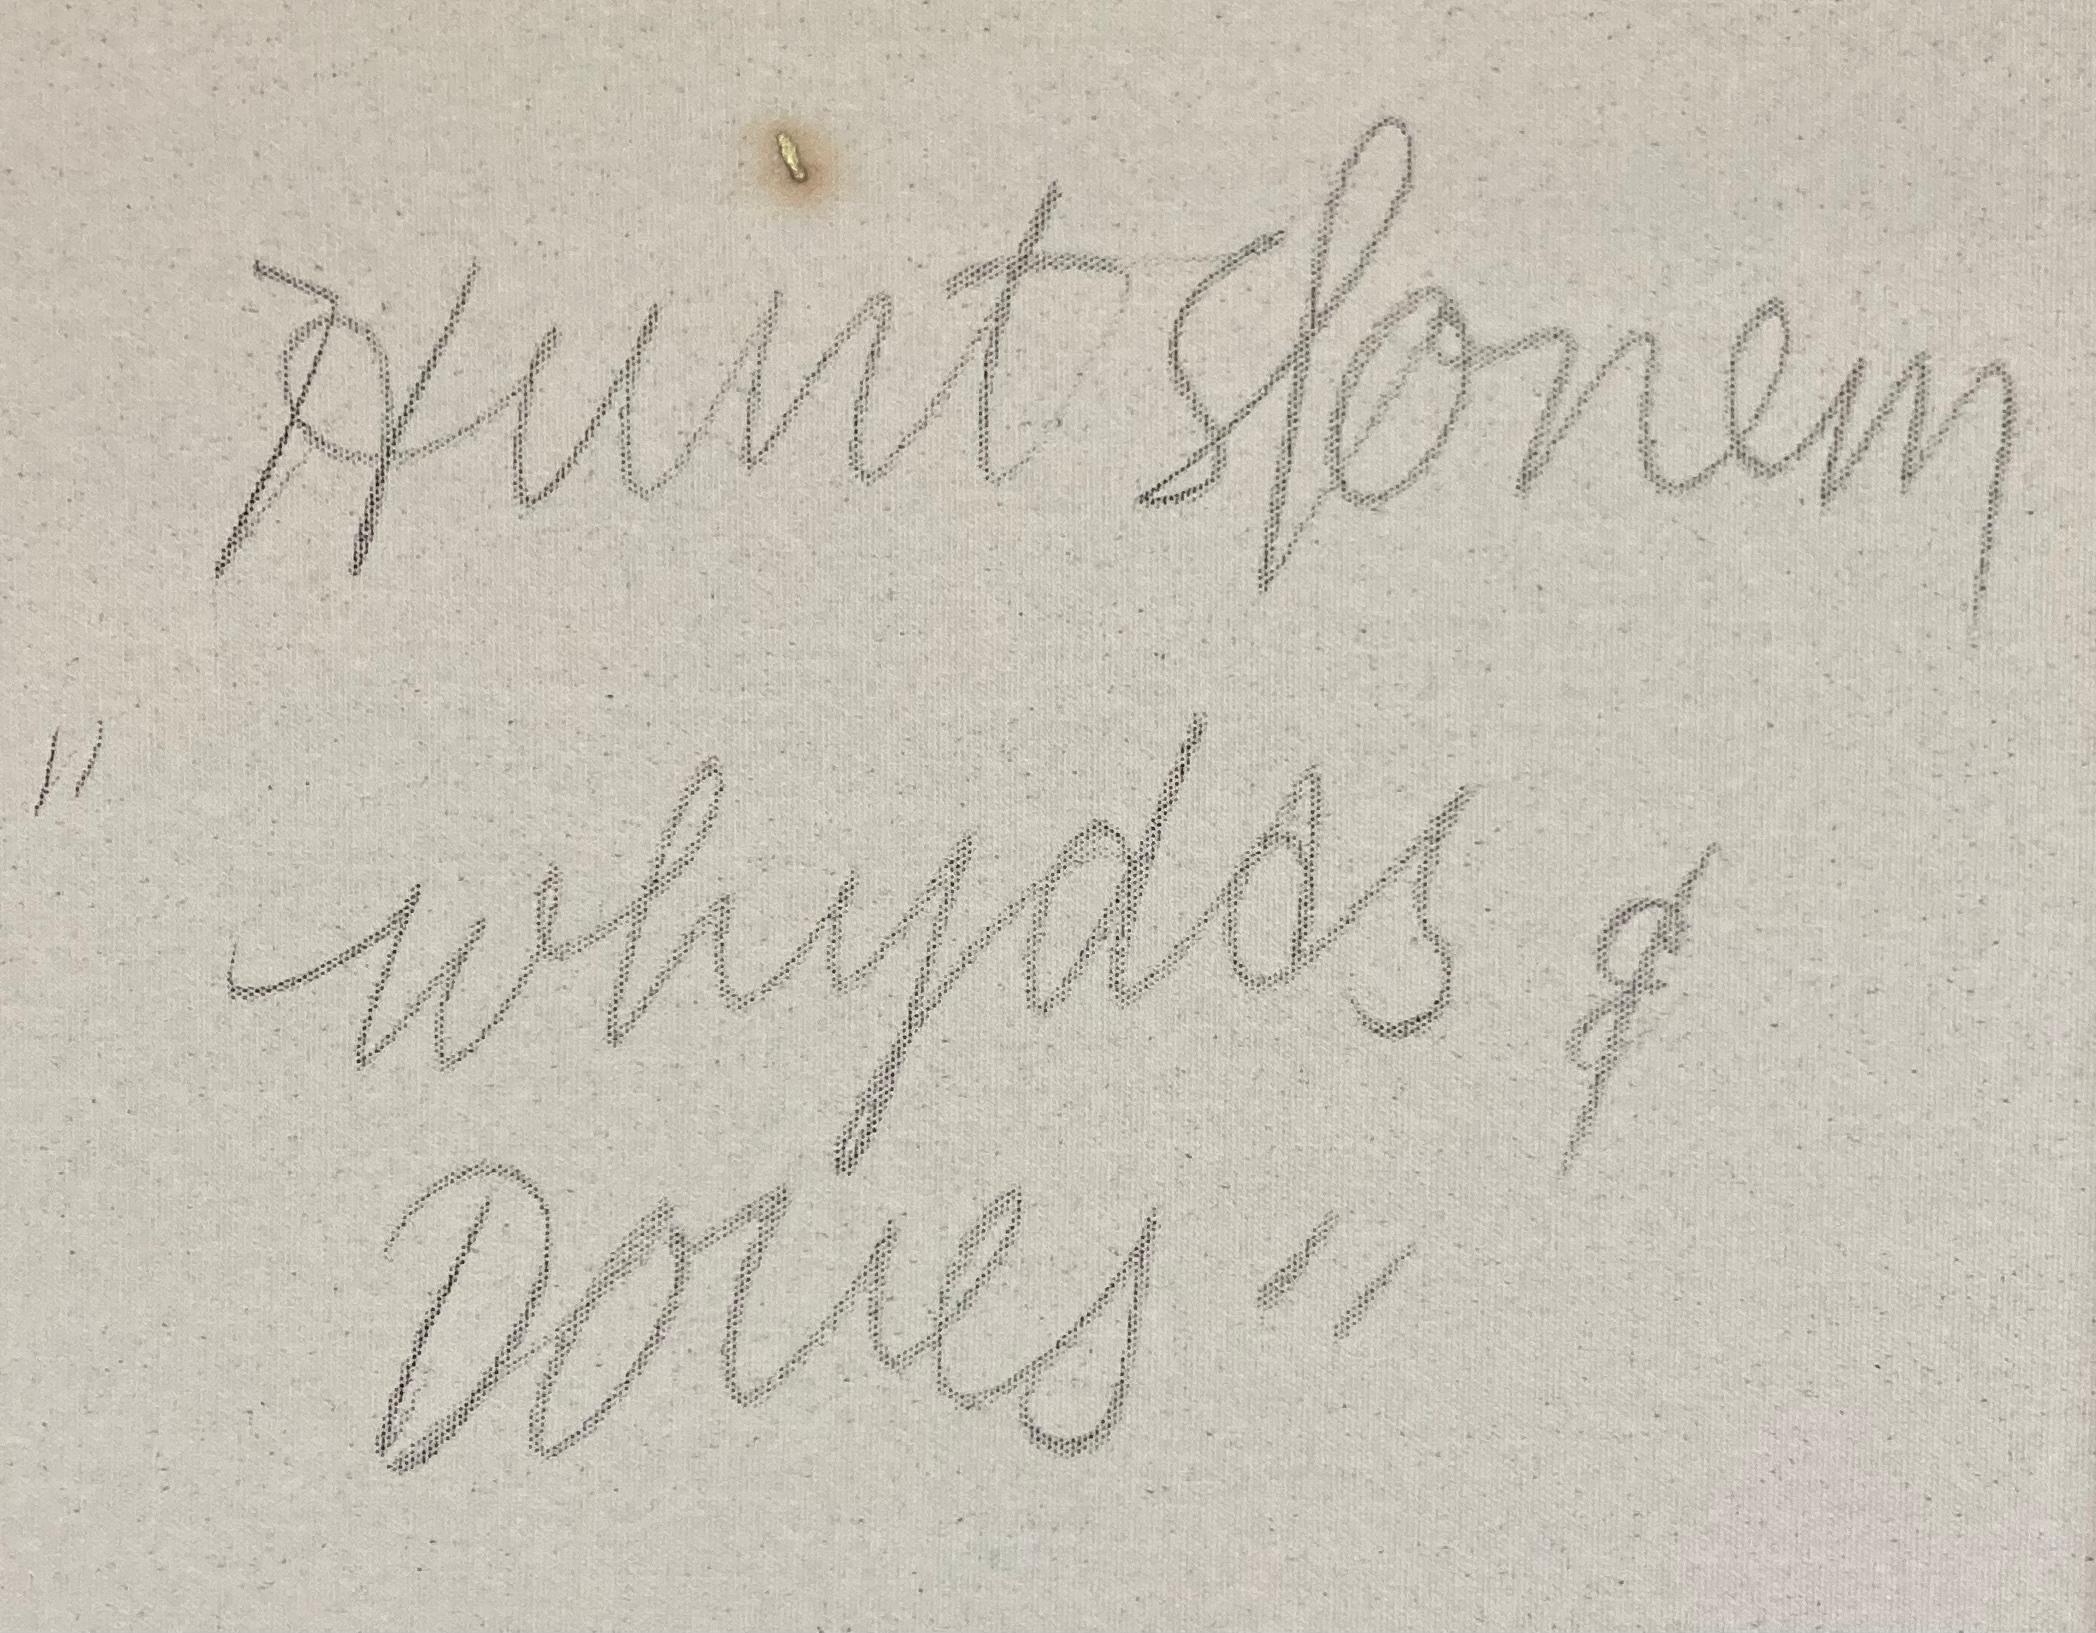 Hunt Slonem
"whydas &
Doves"